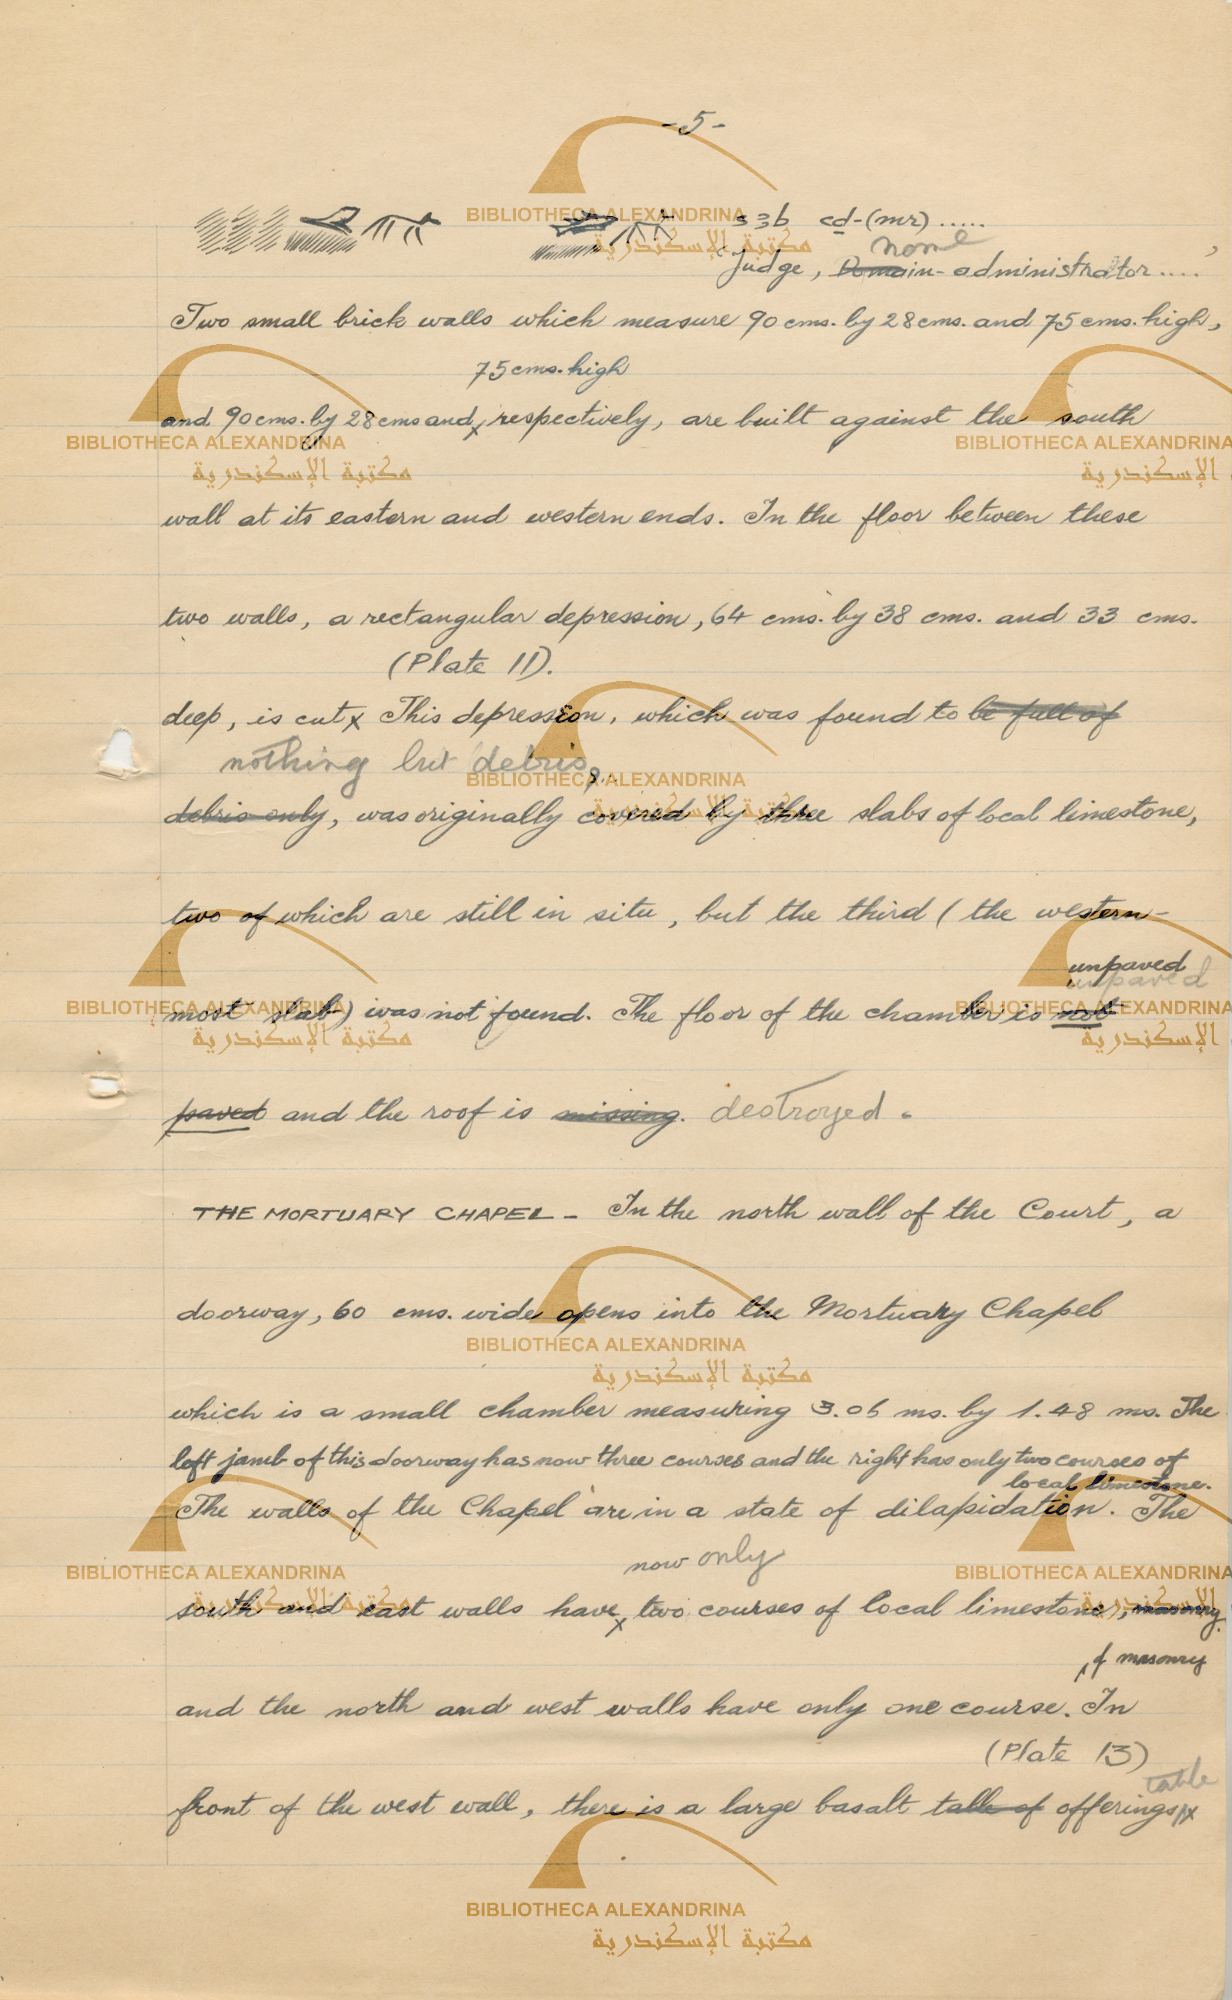 -5-
s3b cd-(mr).....
nome
Judge, Domain-administrator....
Two small brick walls which measure 90 cms. by 28 cms. and 75 cms. high,
75 cms. high
and 90 cms. by 28 cms and x respectively, are built against the south
wall at its eastern and western ends. In the floor between these
two walls, a rectangular depression, 64 cms. by 38 cms. and 33 cms.
(Plate 11).
deep, is cut x This depression, which was found to be full of
nothing but debris,
debris only, was originally covered by three slabs of local limestone,
two of which are still in situ, but the third (the western-
unpaved
unpaved
most slab) was not found. The floor of the chamber is not
paved and the roof is missing. destroyed.
THE MORTUARY CHAPEL - In the north wall of the Court, a
doorway, 60 cms. wide opens into the Mortuary Chapel
which is a small chamber measuring 3.06 ms. by 1.48 ms. The
left jamb of this doorway has now three courses and the right has only two courses of
local limestone.
The walls of the Chapel are in a state of dilapidation. The
now only
south and east walls have x two courses of local limestone, masonry.
of masonry
and the north and west walls have only one course. In
(Plate 13)
table
front of the west wall, there is a large basalt table of offerings x
BIBLIOTHECA ALEXANDRINA
مكتبة الإسكندرية
BIBLIOTHECA ALEXANDRINA
مكتبة الإسكندرية
BIBLIOTHECA ALEXANDRINA
الإسكندرية
BIBLIOTHECA ALEXANDRINA
مكتبة الإسكندرية
BIBLIOTHECA ALEXANDRINA
مكتبة الإسكندرية
BIBLIOTHECA ALEXANDRINA
الإسكندرية
BIBLIOTHECA ALEXANDRINA
مكتبة الإسكندرية
BIBLIOTHECA ALEXANDRINA
مكتبة الإسكندرية
BIBLIOTHECA ALEXANDRINA
الإسكندرية
BIBLIOTHECA ALEXANDRINA
مكتبة الإسكندرية